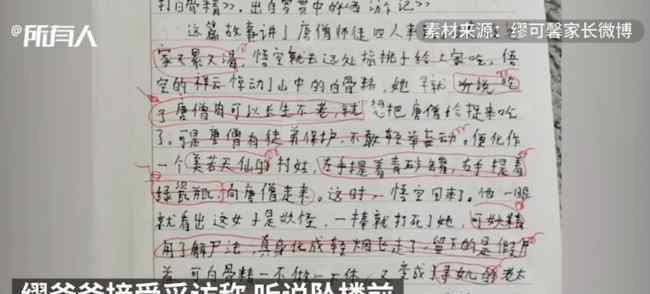 @所有人
素材来源：缪可馨家长微博
打白骨精》，出自罗贯中的《西游记》
这篇故事讲了唐僧师徒四人来
家又累又渴，悟空就去远处摘桃子给大家吃，悟
空的祥云惊动了山中的白骨精，她早就听说吃
了唐僧肉可以长生不老，就想把唐僧给捉来吃
了。可是唐僧有徒弟保护，不敢轻举妄动。便化作
一个美若天仙的村姑，左手提着青砂罐，右手提着
绿瓷瓶，向唐僧走来。这时，悟空回来了。他一眼
就看出这女子是妖怪，一棒就打死了她，可妖精
用了解尸法，真身化成轻烟飞走了，留下的是假尸
首。可白骨精一不做一不休，又变成了
缪爸爸接受采访称，听说坠楼前